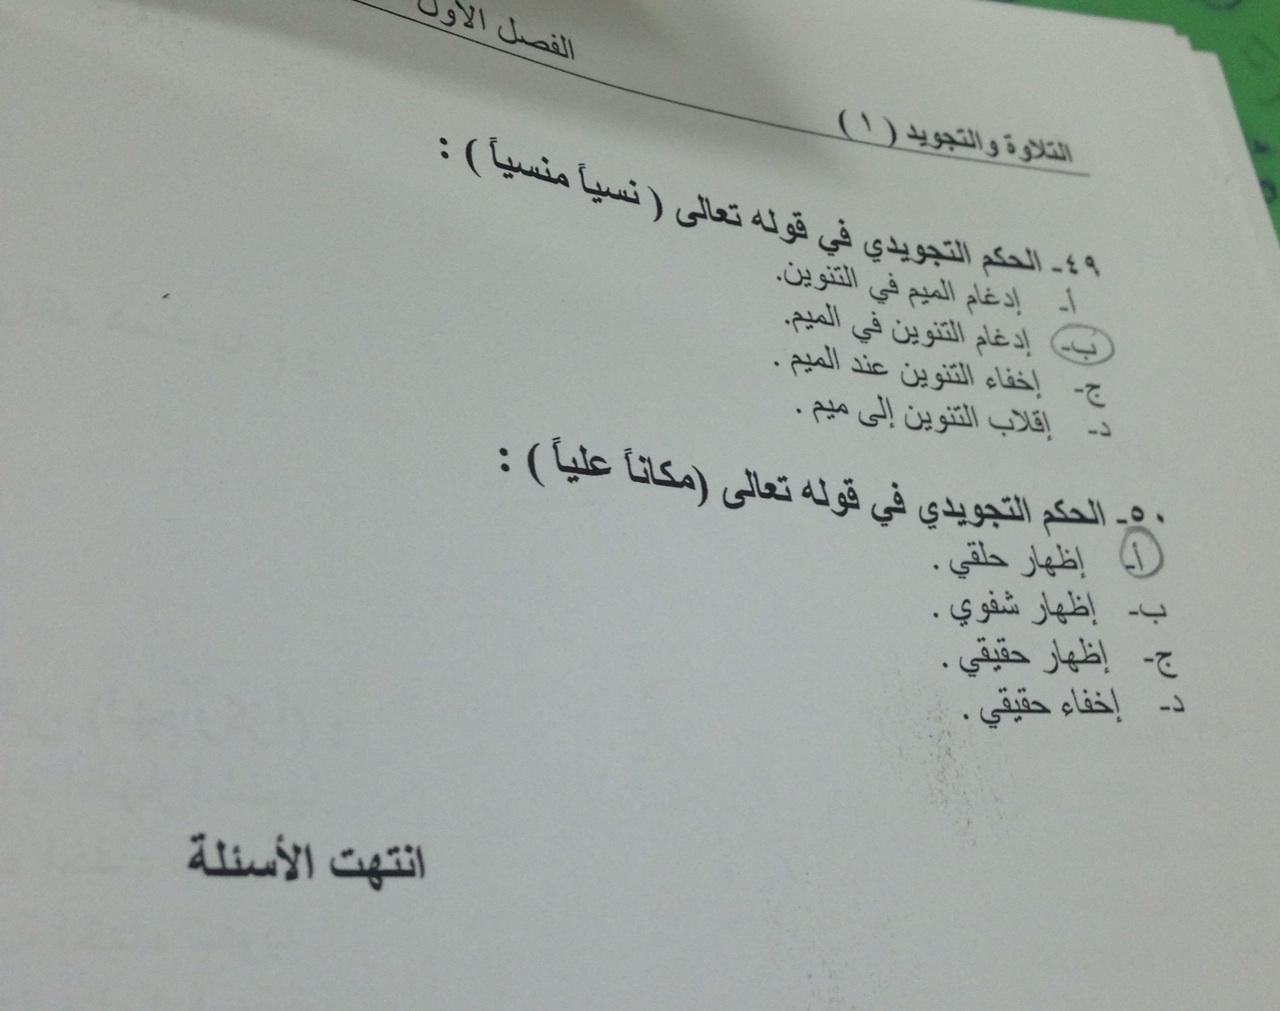 الفصل الأول
التلاوة والتجويد ( ١ )
٤٩- الحكم التجويدي في قوله تعالى ( نسياً منسياً ) :
أ- إدغام الميم في التنوين.
ب- إدغام التنوين في الميم.
ج- إخفاء التنوين عند الميم .
د- إقلاب التنوين إلى ميم .
٥٠- الحكم التجويدي في قوله تعالى (مكاناً علياً ) :
أ- إظهار حلقي .
ب- إظهار شفوي .
ج- إظهار حقيقي .
د- إخفاء حقيقي .
انتهت الأسئلة